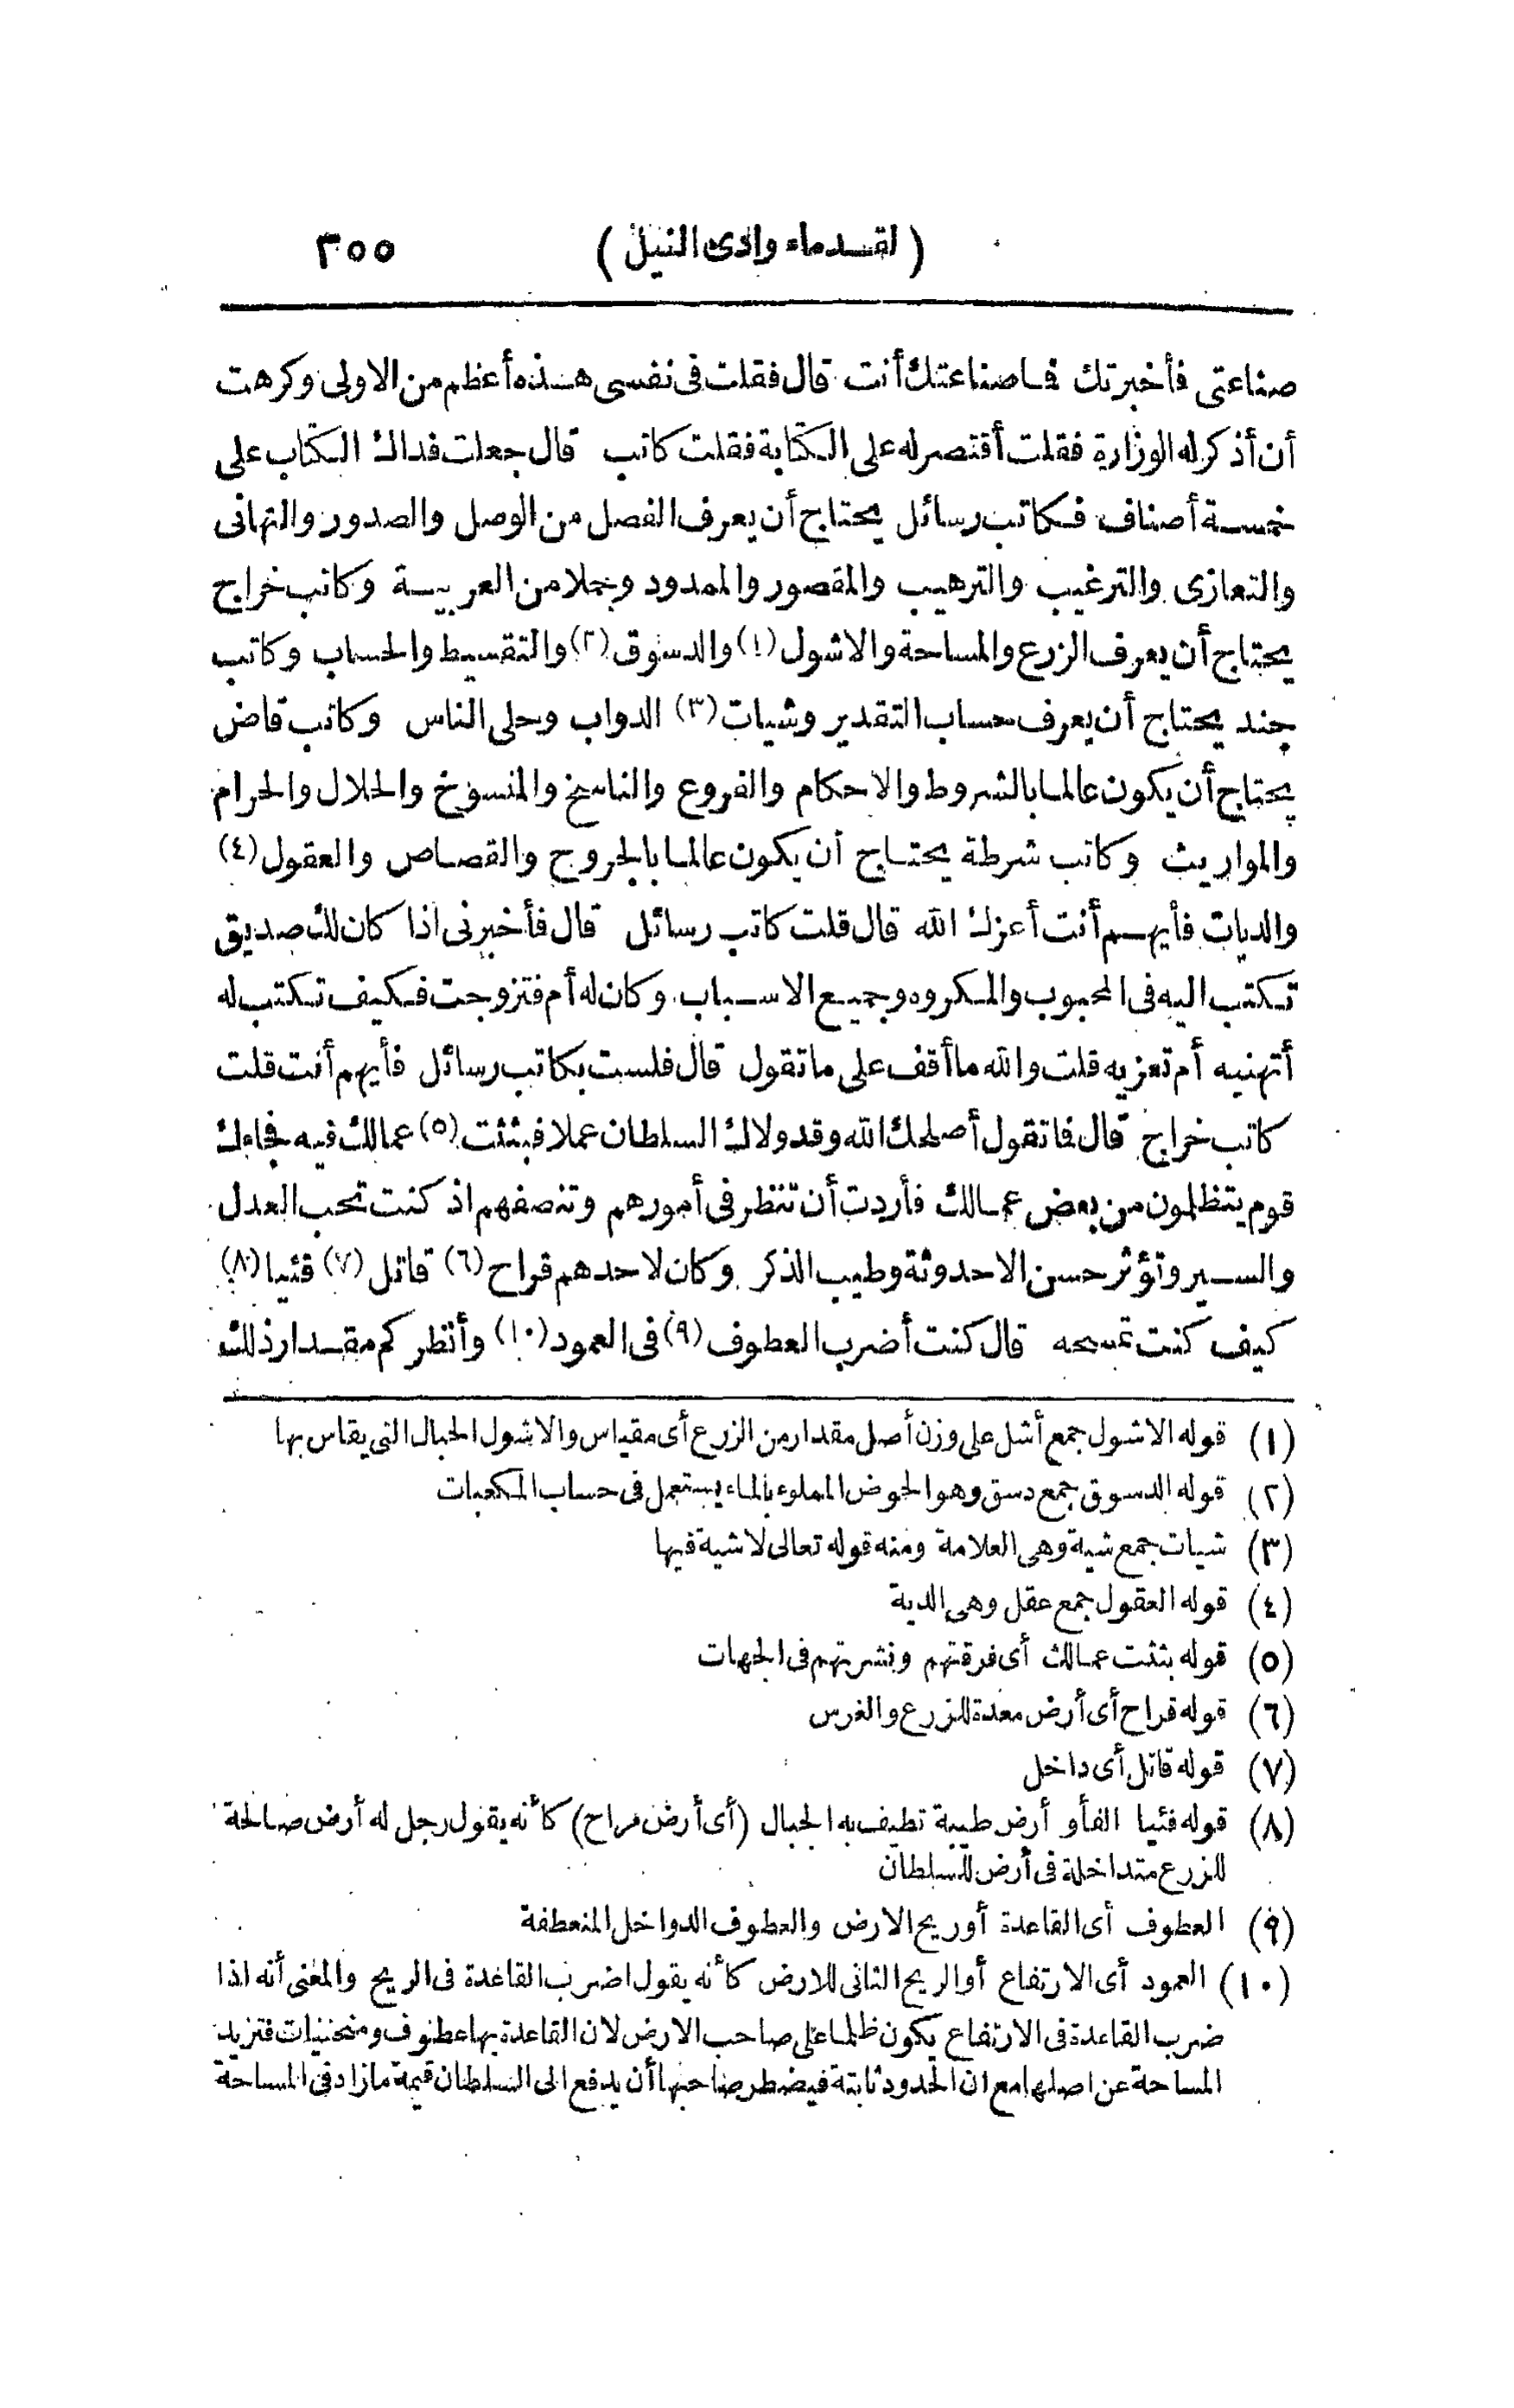 (لقدماء وادى النيل) ٣٥٥
صناعتى فأخبرتك فما صناعتك أنت قال فقلت فى نفسى هذه أعظم من الاولى وكرهت
أن أذكر له الوزارة فقلت أقتصر له على الكتابة فقلت كاتب قال جعلت فداك الكتاب على
خمسة أصناف فكاتب رسائل يحتاج أن يعرف الفصل من الوصل والصدور والتهانى
والتعازى والترغيب والترهيب والمقصور والممدود وجملا من العربية وكاتب خراج
يحتاج أن يعرف الزرع والمساحة والاشول (١) والدسوق (٢) والتقسيط والحساب وكاتب
جند يحتاج أن يعرف حساب التقدير وشيات (٣) الدواب وحلى الناس وكاتب قاض
يحتاج أن يكون عالما بالشروط والاحكام والفروع والناسخ والمنسوخ والحلال والحرام
والمواريث وكاتب شرطة يحتاج أن يكون عالما بالجروح والقصاص والعقول (٤)
والديات فأيهم أنت أعزك الله قال قلت كاتب رسائل قال فأخبرنى اذا كان لك صديق
تكتب اليه فى المحبوب والمكروه وجميع الاسباب وكان له أم فتزوجت فكيف تكتب له
أتهنيه أم تعزيه قلت والله ما أقف على ما تقول قال فلست بكاتب رسائل فأيهم أنت قلت
كاتب خراج قال فما تقول أصلحك الله وقد ولاك السلطان عملا فبثثت (٥) عمالك فيه فجاءك
قوم يتظلمون من بعض عمالك فأردت أن تنظر فى أمورهم وتنصفهم اذ كنت تحب العدل
والسير وتؤثر حسن الاحدوثة وطيب الذكر وكان لاحدهم قراح (٦) قاتل (٧) فئيا (٨)
كيف كنت تمسحه قال كنت أضرب العطوف (٩) فى العمود (١٠) وأنظركم مقدار ذلك
(١) قوله الاشول جمع أشل على وزن أصل مقدار من الزرع أى مقياس والاشول الحبال التى يقاس بها
(٢) قوله الدسوق جمع دسق وهو الحوض المملوء بالماء يستعمل فى حساب المكعبات
(٣) شيات جمع شية وهى العلامة ومنه قوله تعالى لا شية فيها
(٤) قوله العقول جمع عقل وهى الدية
(٥) قوله بثثت عمالك أى فرقتهم ونشرتهم فى الجهات
(٦) قوله قراح أى أرض معدة للزرع والغرس
(٧) قوله قاتل أى داخل
(٨) قوله فئيا الفأو أرض طيبة تطيف به الجبال (أى أرض مراح) كأنه يقول رجل له أرض صالحة
للزرع متداخلة فى أرض للسلطان
(٩) العطوف أى القاعدة أو ريح الارض والعطوف الدواخل المنعطفة
(١٠) العمود أى الارتفاع أو الريح الثانى للارض كأنه يقول اضرب القاعدة فى الريح والمعنى أنه اذا
ضرب القاعدة فى الارتفاع يكون ظلما على صاحب الارض لان القاعدة بها عطوف ومنحنيات فتزيد
المساحة عن اصلها مع ان الحدود ثابتة فيضطر صاحبها أن يدفع الى السلطان قيمة ما زاد فى المساحة